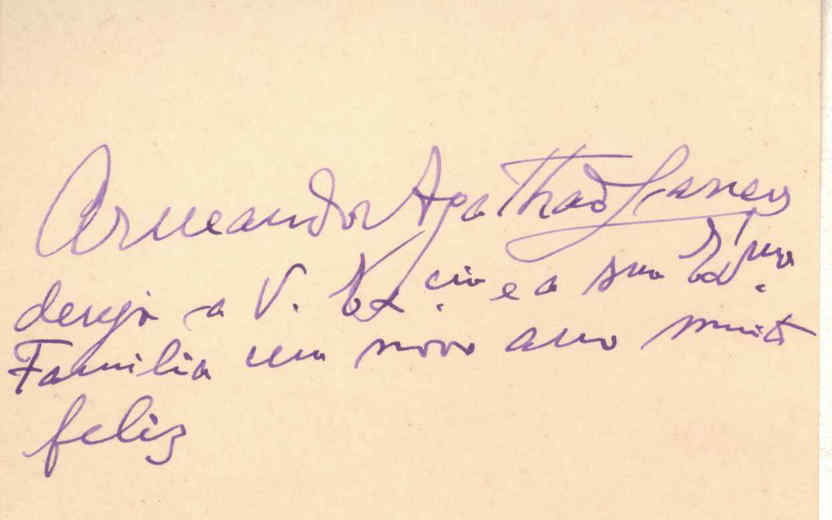 Armando Agathão
deseja a V. Ex.cia e a sua Ex.ma
Familia um novo ano muito
feliz